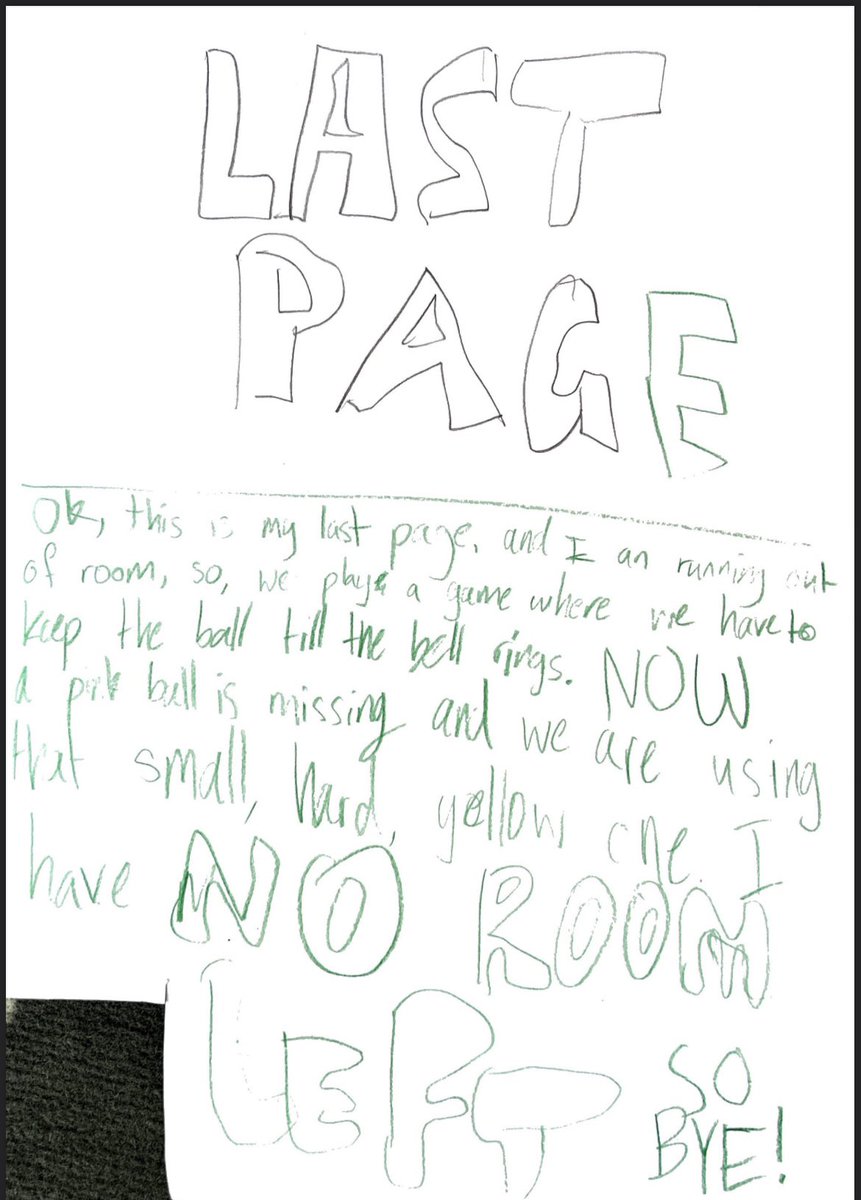 LAST
PAGE
Ok, this is my last page. and I an running out
of room, so, we plays a game where we have to
keep the ball till the bell rings. NOW
a pink ball is missing and we are using
that small, hard, yellow one. I
have NO ROOM
LEFT SO
BYE!